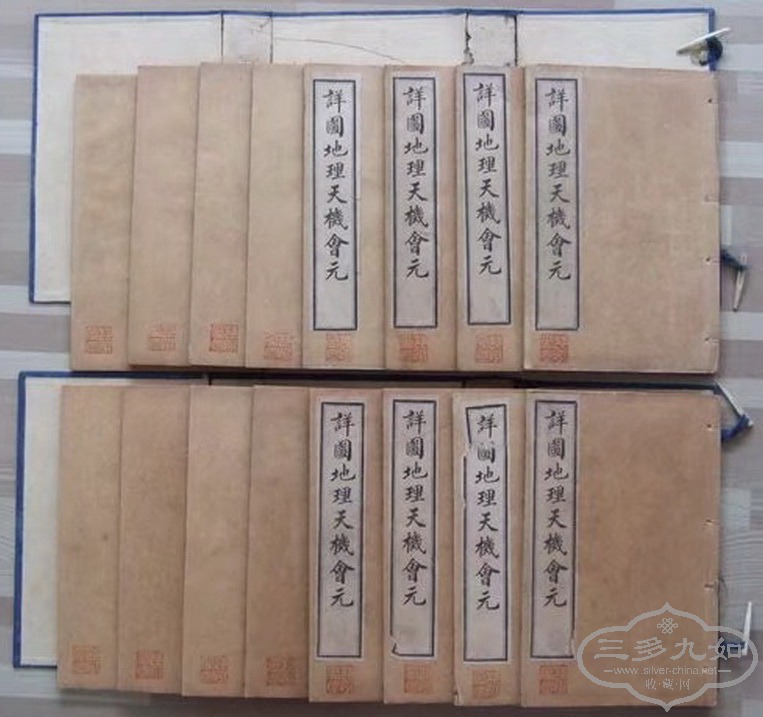 詳圖地理天機會元
詳圖地理天機會元
詳圖地理天機會元
詳圖地理天機會元
詳圖地理天機會元
詳圖地理天機會元
詳圖地理天機會元
詳圖地理天機會元
三多九如
www.silver-china.net
收·藏·网